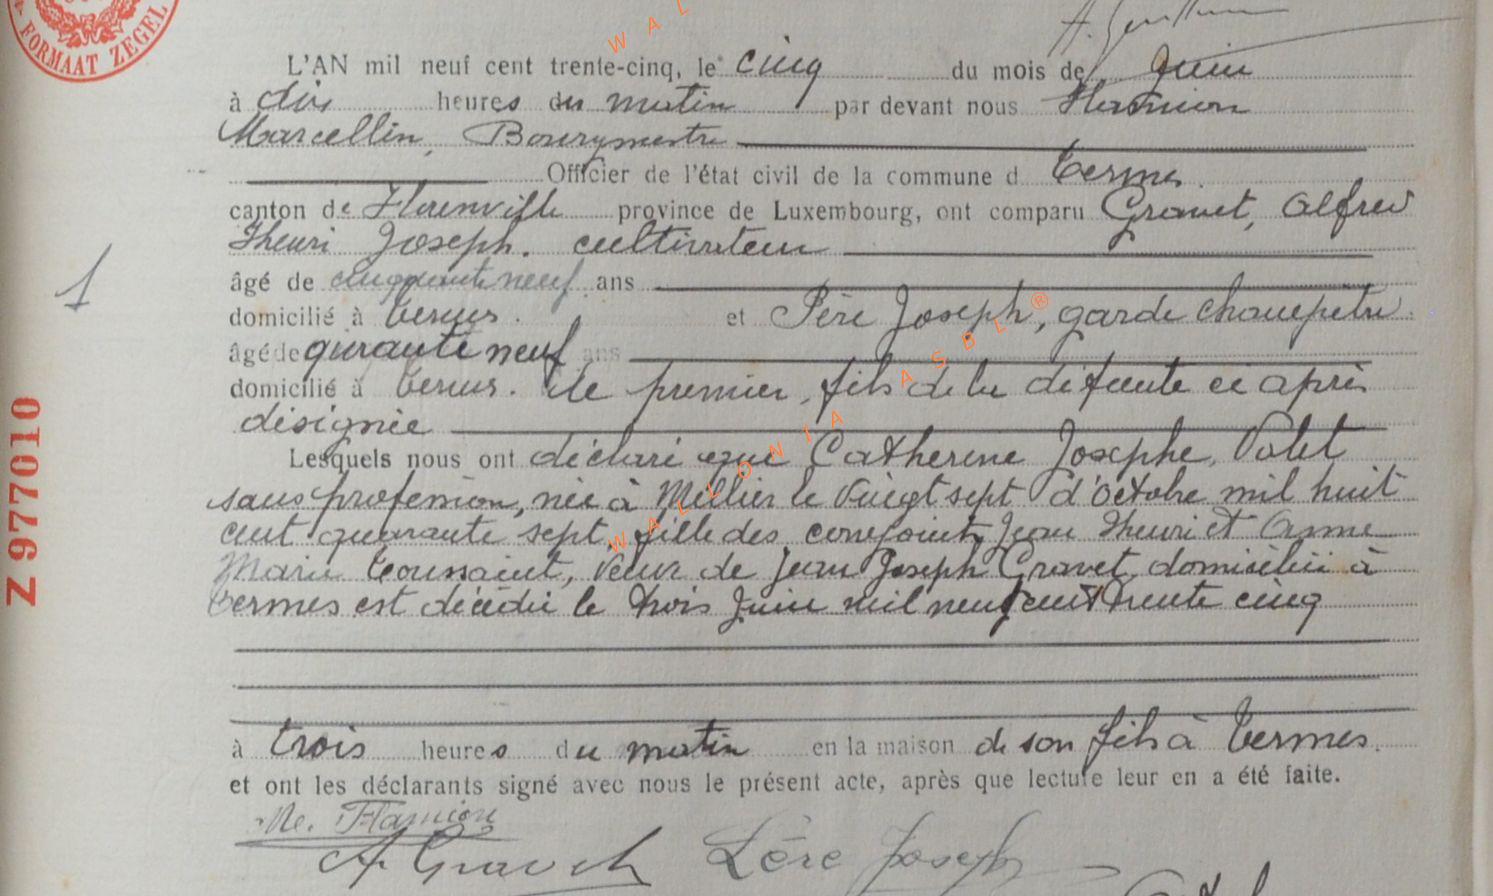 FORMAAT ZEGEL
L'AN mil neuf cent trente-cinq, le cinq du mois de Juin
à dix heures du matin par devant nous Flamion
Marcellin, Bourgmestre
Officier de l'état civil de la commune d Termes.
canton de Florenville province de Luxembourg, ont comparu Gravet, Alfred
Henri Joseph. cultivateur
1
âgé de cinquante neuf ans
domicilié à Termes. et Père Joseph, garde champetre
âgé de quarante neuf ans
domicilié à Termes. Le premier, fils de la défunte ci après
désignée
Lesquels nous ont déclaré que Catherine Josephe, Volet
sans profession, née à Mellier le vingt sept d'octobre mil huit
cent quarante sept, fille des conjoints Jean Henri et Anne
Marie Toussaint, veuve de Jean Joseph Gravet, domiciliée à
Termes est décédée le trois Juin mil neuf cent trente cinq
à trois heures du matin en la maison de son fils à Termes.
et ont les déclarants signé avec nous le présent acte, après que lecture leur en a été faite.
M. Flamion
A Gravet Père Joseph
Z 977010
WALLONIA ASBL®